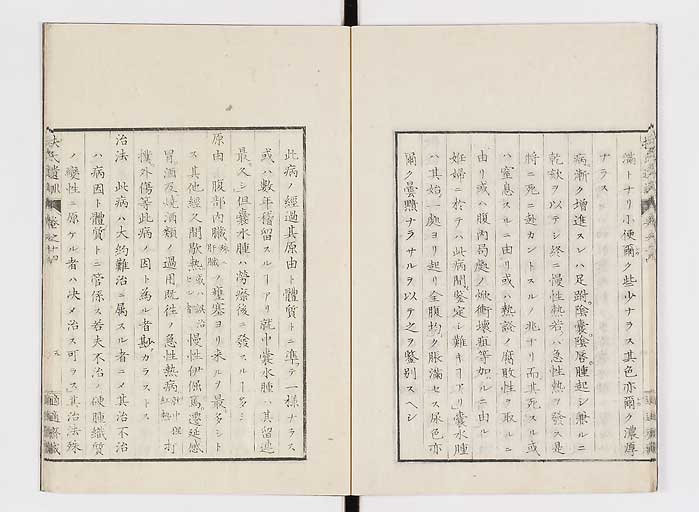 滿トナリ小便爾ク些少ナラス其色亦爾ク濃厚
ナラス
病漸ク增進スレハ足跗陰囊陰唇腫起シ兼ルニ
乾欬ヲ以テシ終ニ慢性熱若ハ急性熱ヲ發ス是
將ニ死ニ赴カントスルノ兆ナリ而其死スル或
ハ窒息スルニ由リ或ハ熱設ノ腐敗性ヲ取ルニ
由リ或ハ腹內局處ノ焮衝壞疽等加ルニ由ル
妊婦ニ於テハ此病間鑒定シ難キヿアリ囊水腫
ハ其始一處ヨリ起リ全腹均ク脹滿セス尿色亦
爾ク曇黯ナラサルヲ以テ之ヲ鑒別スヘシ
此病ノ經過其原由ト體質トニ準テ一樣ナラス
或ハ數年稽留スルヿアリ就中囊水腫ハ其留連
最久シ但囊水腫ハ勞療後ニ發スルヿ多シ
原由 腹部內臟殊肝臟ノ壅塞ヨリ來ルヲ最多シト
ス其他經久間歇熱慢性伊倔篤遷延感
冒酒及燒酒類ノ過用旣徃ノ急性熱病打
撲外傷等此病ノ因ト爲ル者尠カラストス
治法 此病ハ大約難治ニ屬スル者ニメ其治不治
ハ病因ト體質トニ管係ス若夫不治ノ硬腫織質
ノ變性ニ原ケル者ハ決メ治ス可ラス其治法殊
扶氏遺訓 卷之十四
適適齋藏